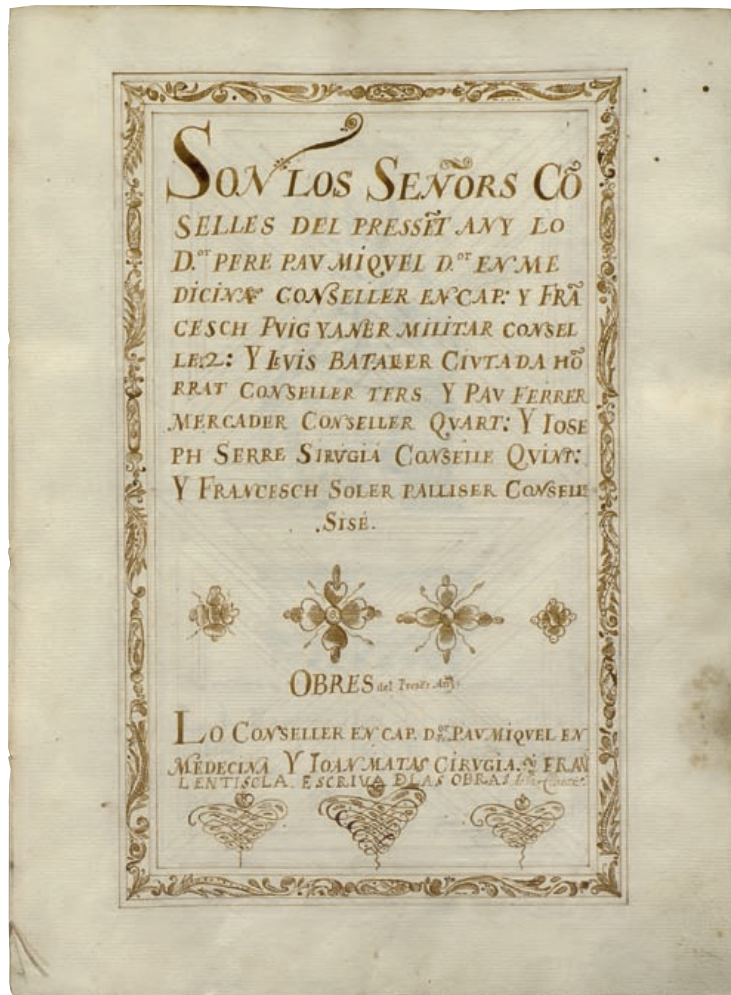 SON LOS SEÑORS CÕ
SELLES DEL PRESSẼT ANY LO
D.ᵒʳ PERE PAV MIQVEL D.ᵒʳ EN ME
DICINA CONSELLER EN CAP: Y FRÃ
CESCH PVIG YANER MILITAR CONSEL
LE:2: Y LVIS BATALLER CIVTADA HÕ
RRAT CONSELLER TERS Y PAV FERRER
MERCADER CONSELLER QVART: Y IOSE
PH SERRE SIRVGIÁ CONSELLE QVINT:
Y FRANCESCH SOLER PALLISER CONSELLE
.SISÉ.
OBRES del Present Any.
LO CONSELLER EN CAP. D.ᵒʳ PAV MIQVEL EN
MEDECINA Y IOAN MATAS CIRVGIA. Y FRAN
LENTISCLA. ESCRIVA DLAS OBRAS